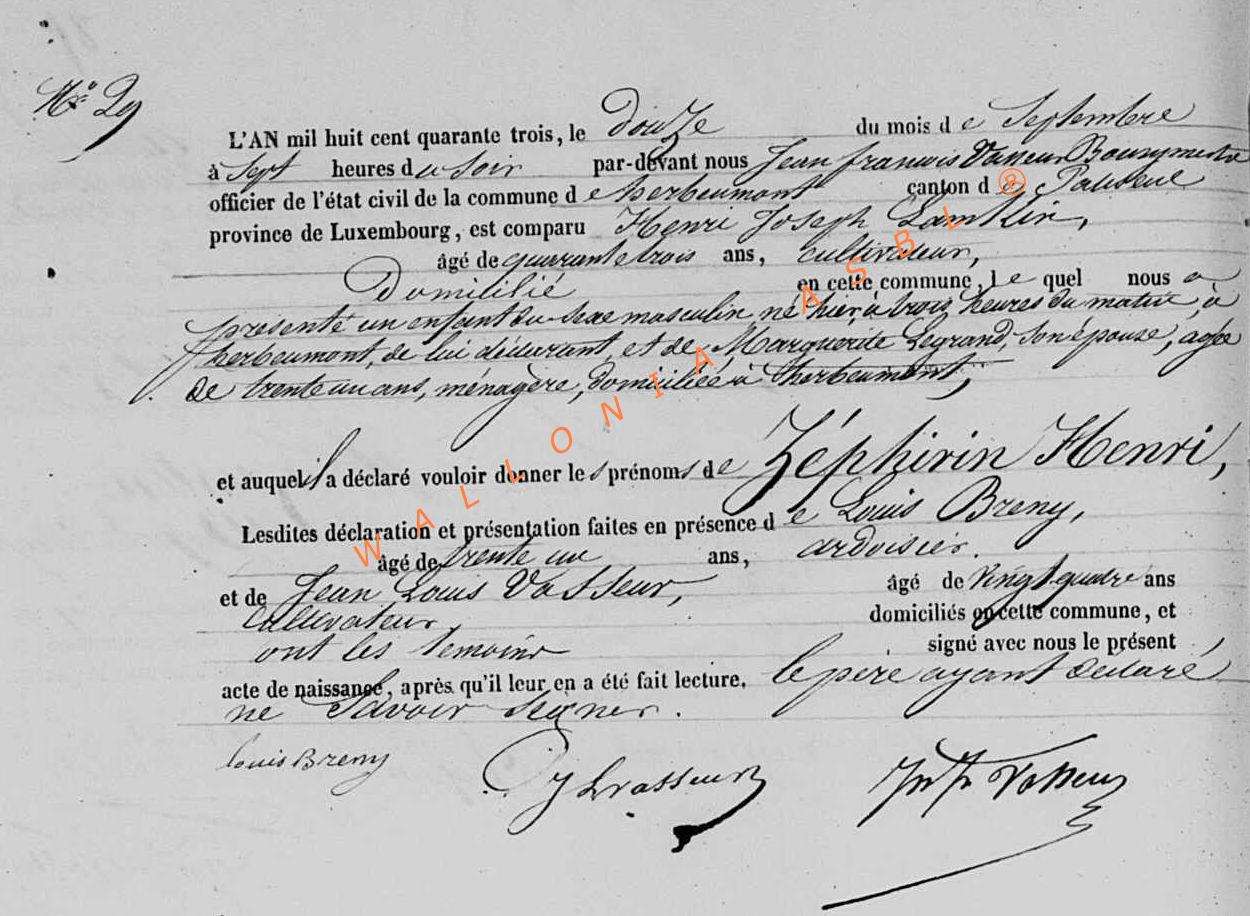 N° 29
L'AN mil huit cent quarante trois, le douze du mois de Septembre
à Sept heures du Soir par-devant nous Jean françois Vasseur Bourgmestre
officier de l'état civil de la commune de herbeumont canton de Paliseul
province de Luxembourg, est comparu Henri Joseph Lamblin,
âgé de quarante trois ans, cultivateur,
Domicilié en cette commune, le quel nous a
présenté un enfant du sexe masculin né hier, à trois heures du matin, à
herbeumont, de lui déclarant, et de Marguerite Legrand, son épouse, agée
de trente un ans, ménagère, domiciliée à herbeumont,
et auquel il a déclaré vouloir donner les prénoms de Zéphirin Henri,
Lesdites déclaration et présentation faites en présence de Louis Breny,
âgé de trente un ans, ardoisier.
et de Jean Louis Vasseur, âgé de vingt quatre ans
Cultivateur, domiciliés en cette commune, et
ont les temoins signé avec nous le présent
acte de naissance, après qu'il leur en a été fait lecture. le père ayant déclaré
ne Savoir Signer.
louis Breny J L vasseur Vasseur
WALLONIA ASBL ®